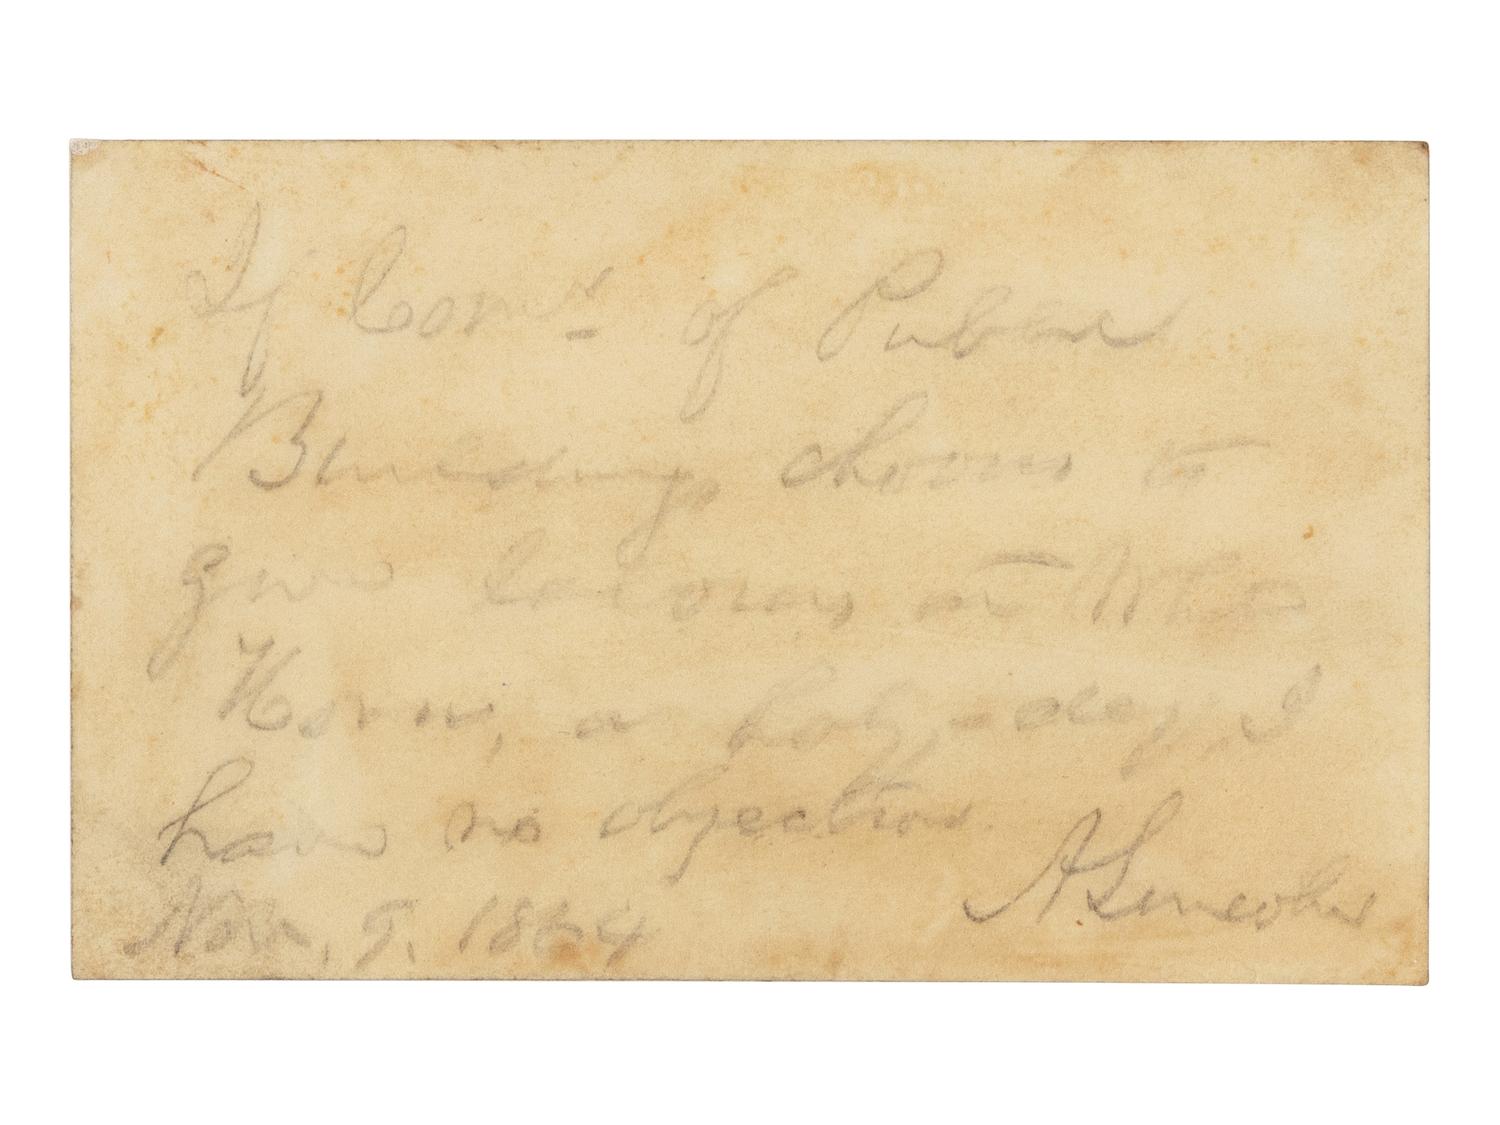 If Comr. of Public
Buildings chooses to
give laborers at White
House, a holy-day, I
have no objection.
A. Lincoln
Nov. 5. 1864